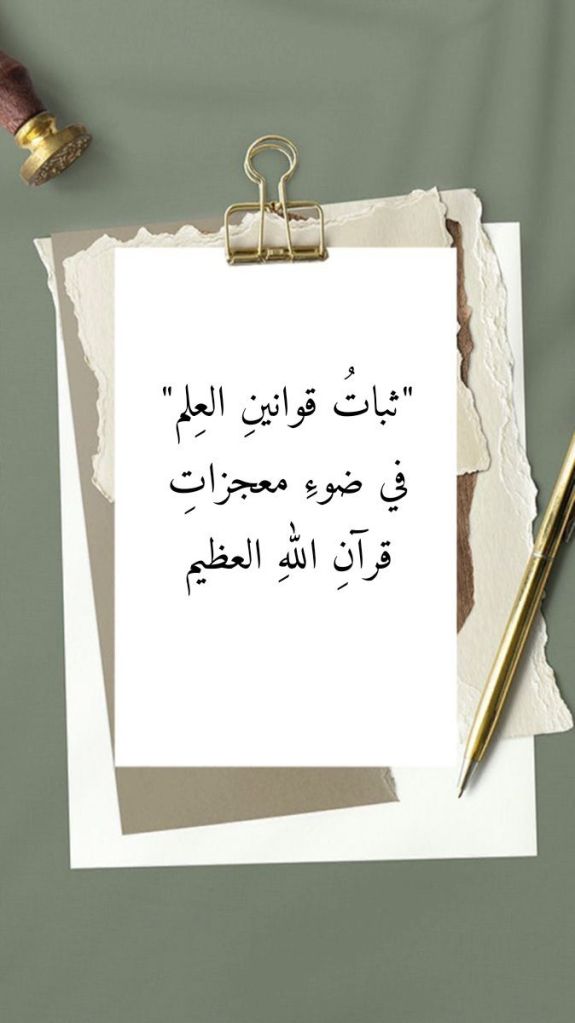 "ثباتُ قوانينِ العِلم"
في ضوءِ معجزاتِ
قرآنِ اللهِ العظيم